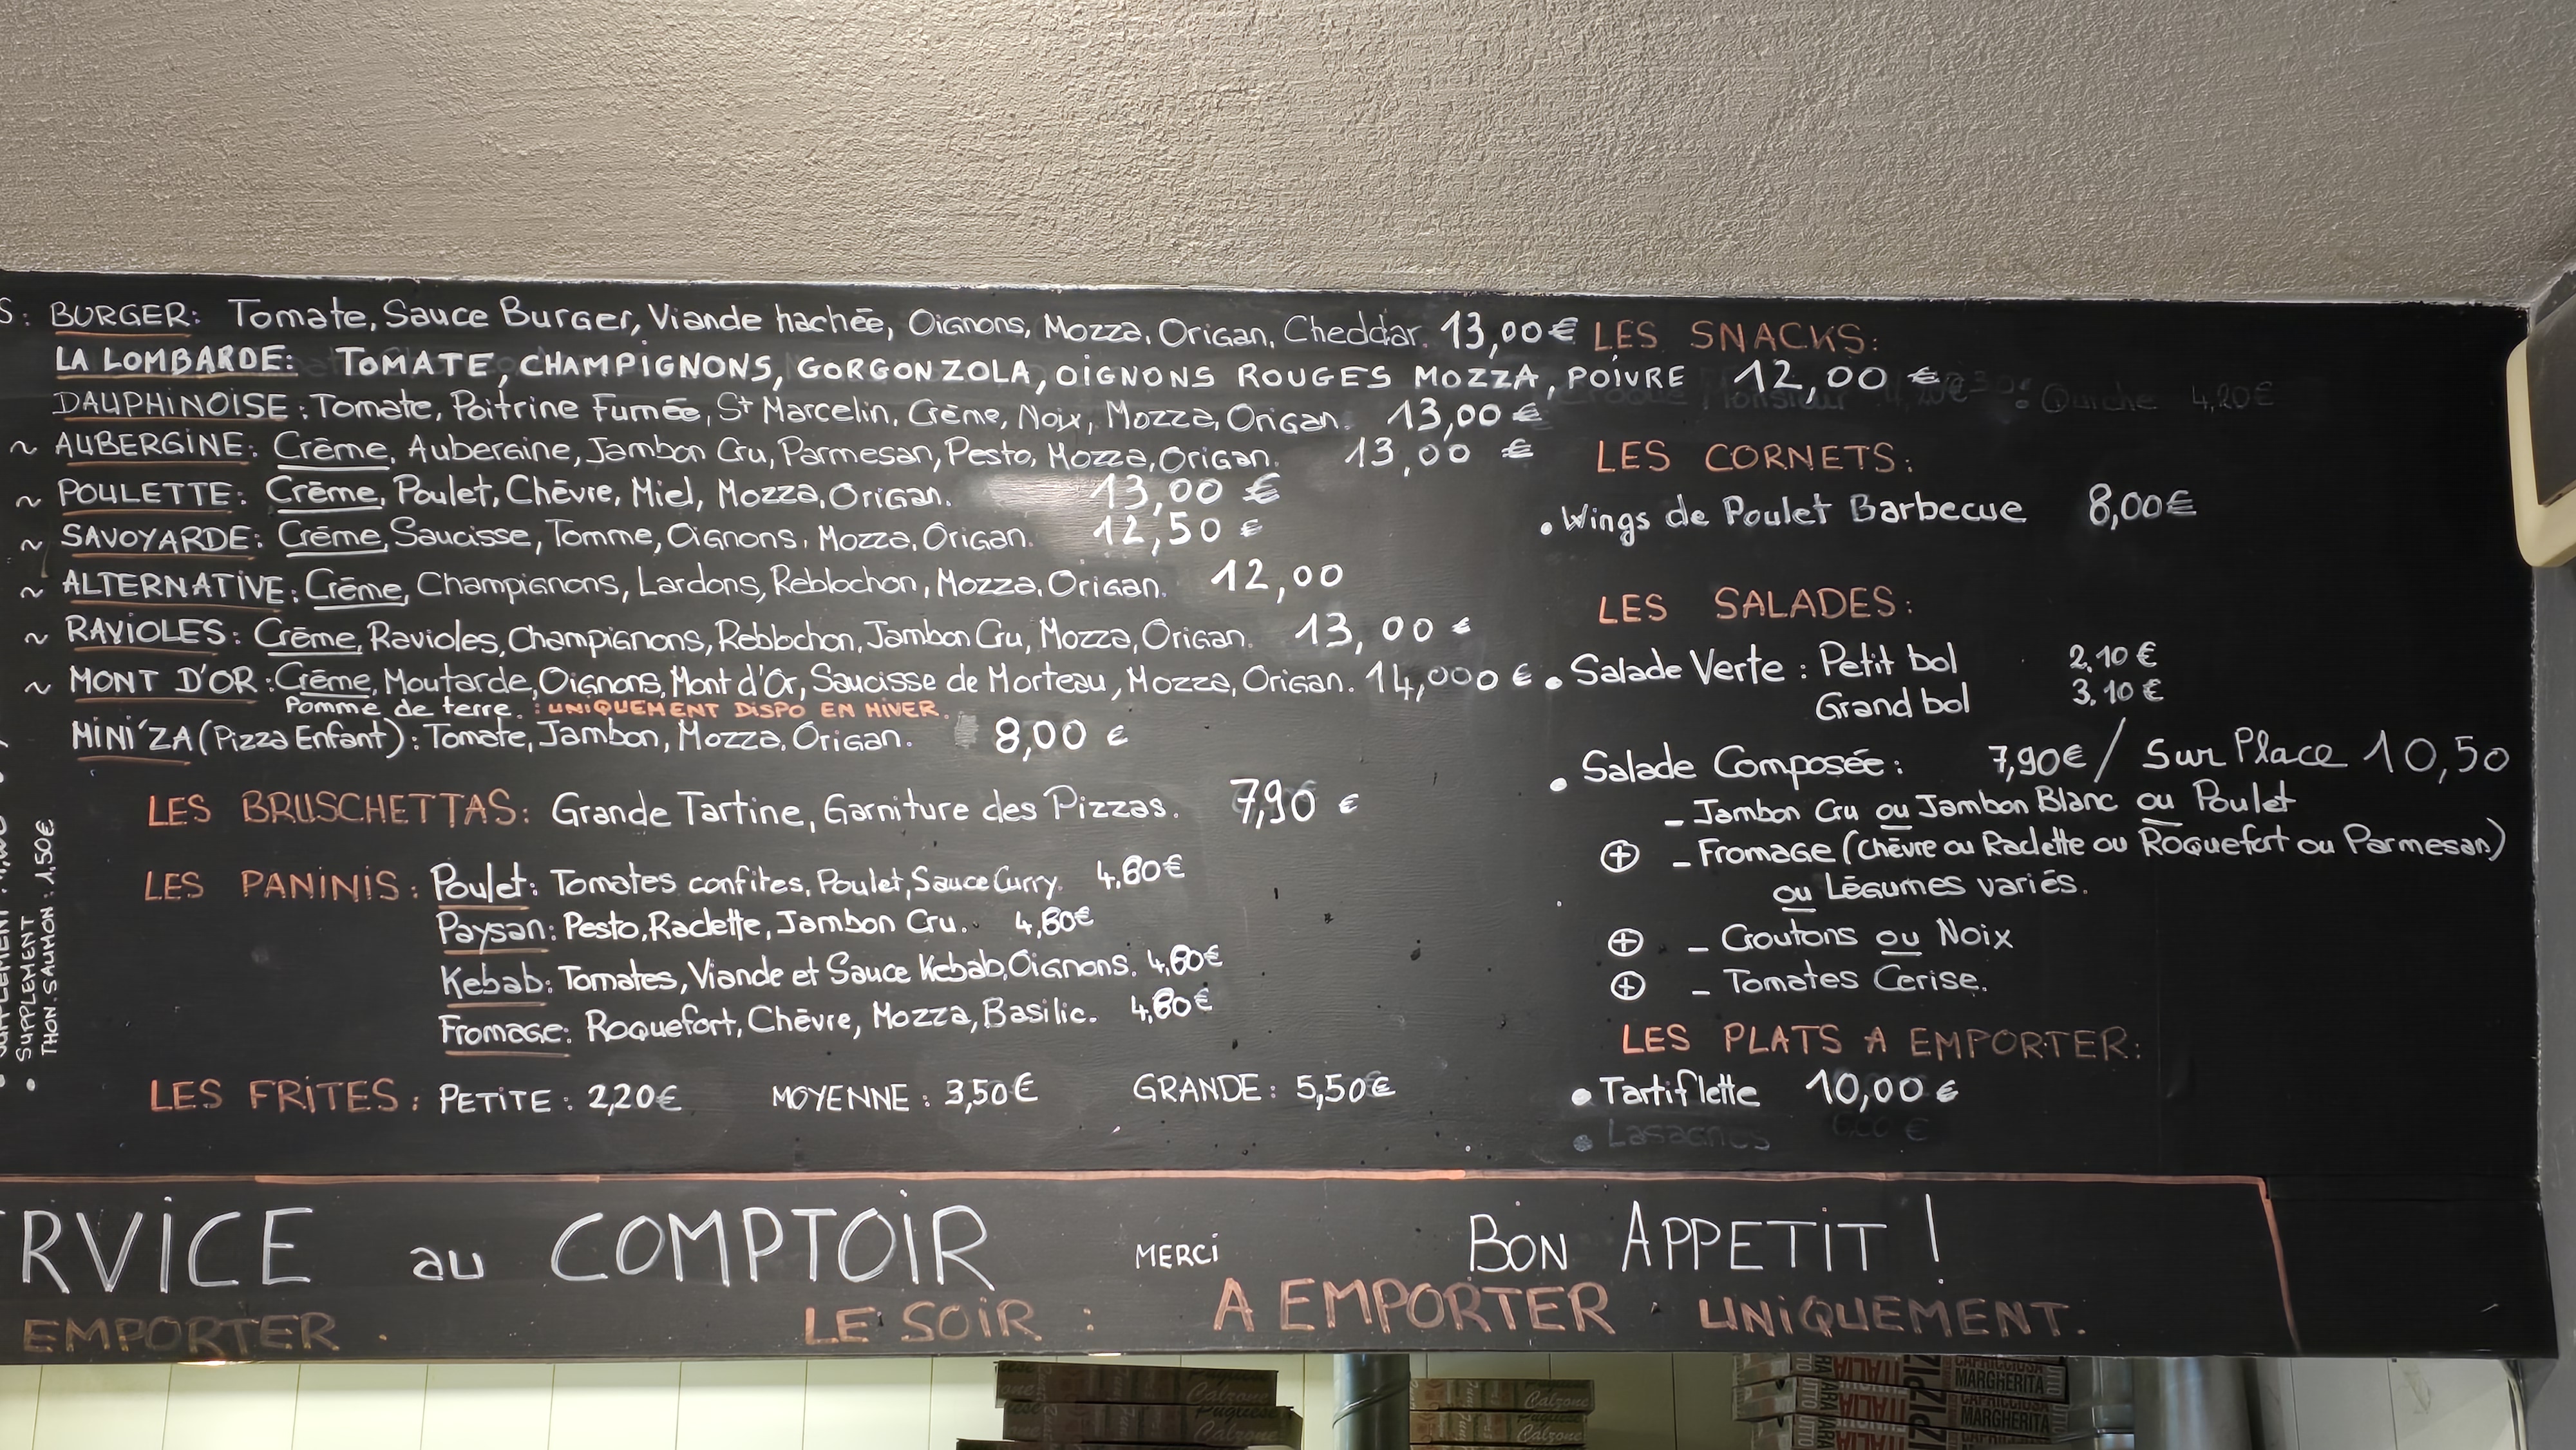 S: BURGER: Tomate, Sauce Burger, Viande hachée, Oignons, Mozza, Origan, Cheddar. 13,00€
LA LOMBARDE: TOMATE, CHAMPIGNONS, GORGONZOLA, OIGNONS ROUGES MOZZA, POIVRE 12,00 €
DAUPHINOISE: Tomate, Poitrine Fumée, St Marcelin, Crème, Noix, Mozza, Origan. 13,00 €
~ AUBERGINE: Crème, Aubergine, Jambon Cru, Parmesan, Pesto, Mozza, Origan. 13,00 €
~ POULETTE: Crème, Poulet, Chèvre, Miel, Mozza, Origan. 13,00 €
~ SAVOYARDE: Crème, Saucisse, Tomme, Oignons, Mozza, Origan. 12,50 €
~ ALTERNATIVE: Crème, Champignons, Lardons, Reblochon, Mozza, Origan. 12,00
~ RAVIOLES: Crème, Ravioles, Champignons, Reblochon, Jambon Cru, Mozza, Origan. 13,00 €
~ MONT D'OR: Crème, Moutarde, Oignons, Mont d'Or, Saucisse de Morteau, Mozza, Origan. 14,000 €
Pomme de terre. : UNIQUEMENT DISPO EN HIVER.
MINI'ZA (Pizza Enfant): Tomate, Jambon, Mozza, Origan. 8,00 €
LES BRUSCHETTAS: Grande Tartine, Garniture des Pizzas. 7,90 €
LES PANINIS: Poulet: Tomates confites, Poulet, Sauce Curry. 4,80€
Paysan: Pesto, Raclette, Jambon Cru. 4,80€
Kebab: Tomates, Viande et Sauce Kebab, Oignons. 4,80€
Fromage: Roquefort, Chèvre, Mozza, Basilic. 4,80€
LES FRITES: PETITE: 2,20€ MOYENNE: 3,50€ GRANDE: 5,50€
• SUPPLEMENT
THON. SAUMON: 1,50€
LES SNACKS:
Croque Monsieur Quiche 4,20€
LES CORNETS:
• Wings de Poulet Barbecue 8,00€
LES SALADES:
• Salade Verte: Petit bol 2,10 €
Grand bol 3,10 €
• Salade Composée: 7,90€ / Sur Place 10,50
- Jambon Cru ou Jambon Blanc ou Poulet
⊕ - Fromage (chèvre ou Raclette ou Roquefort ou Parmesan)
ou Légumes variés.
⊕ - Croutons ou Noix
⊕ - Tomates Cerise.
LES PLATS A EMPORTER:
• Tartiflette 10,00 €
• Lasagnes
RVICE au COMPTOIR MERCI BON APPETIT !
EMPORTER. LE SOIR: A EMPORTER UNIQUEMENT.
Calzone
Pugliese
Calzone
Calzone
Pugliese
Calzone
CAPRICCIOSA
MARGHERITA
ITALIA
CAPRICCIOSA
MARGHERITA
ITALIA